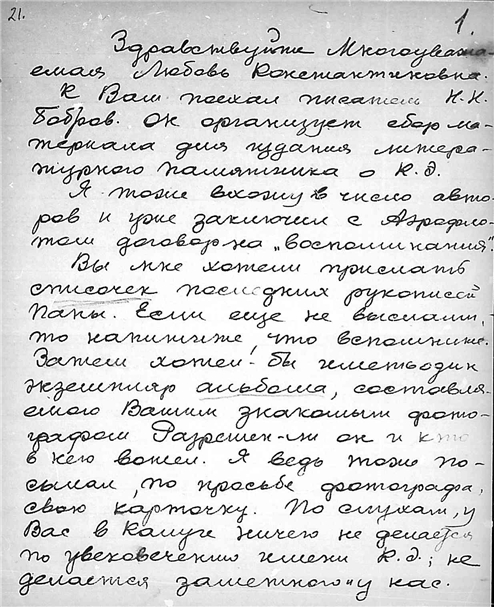 21.
1.
Здравствуйте Многоуважа-
емая Любовь Константиновна.
К Вам поехал писатель Н.Н.
Бобров. Он организует сбор ма-
териала для издания литера-
турного памятника о К.Э.
Я тоже вхожу в число авто-
ров и уже заключил с Аэрофло-
том договор на „воспоминания".
Вы мне хотели прислать
списочек последних рукописей
папы. Если еще не выслали,
то напишите, что вспомните.
Затем хотел бы иметь один
экземпляр альбома, составля-
емого Вашим знакомым фото-
графом Разрешен-ли он и кто
в него вошел. Я ведь тоже по-
сылал, по просьбе фотографа,
свою карточку. По слухам, у
Вас в Калуге ничего не делается
по увековечению имени К.Э.; не
делается заметного и у нас.